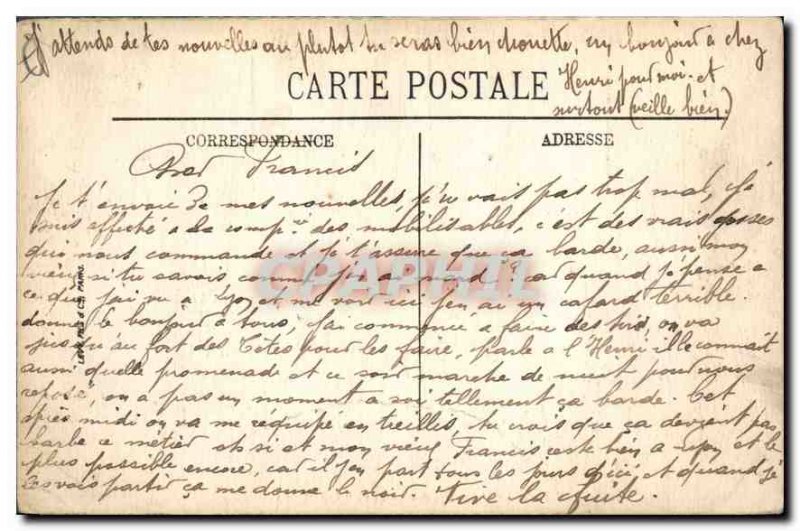 J'attends de tes nouvelles au plutot tu seras bien chouette, un bonjour a chez
Henri pour moi et
surtout (veille bien.)
CARTE POSTALE
CORRESPONDANCE
ADRESSE
Francis
Je t'envoie de mes nouvelles, je vais pas trop mal, j'e
suis affecté a la comp. des mobilisables, c'est des vrais
qui nous commande et je t'assure que ça barde, aussi mon
vieux si tu savais comme j'en ai marre, car quand je pense a
ce que j'ai vu a Lyon et me voir ici j'en ai un cafard terrible.
donne le bonjour a tous, j'ai commencé a faire des tirs, on va
jusqu'au fort des Têtes pour les faire, parle a l'Henri il le connait
aussi quelle promenade et ce soir marche de nuit pour nous
reposé, on a pas un moment a soi tellement ça barde. Cet
après midi on va me rééquipé en treillis, tu crois que ça devient pas
barbe ce métier et si et mon vieux Francis c'est bien a Lyon et le
plus possible encore, car il en part tous les jours d'ici et quand je
les vois partir ça me donne le noir. Tire la chute.
LEVY FILS & Cie PARIS
CPAPHIL